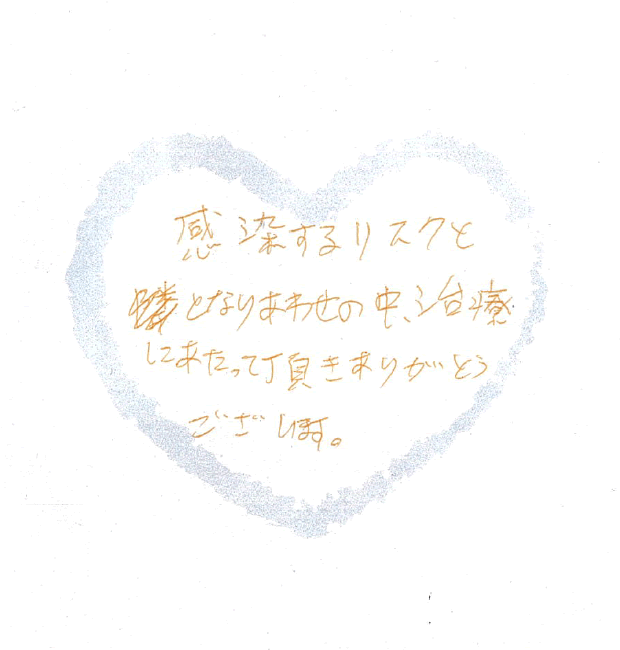 感染するリスクと
となりあわせの中、治療
にあたって頂きありがとう
ございます。